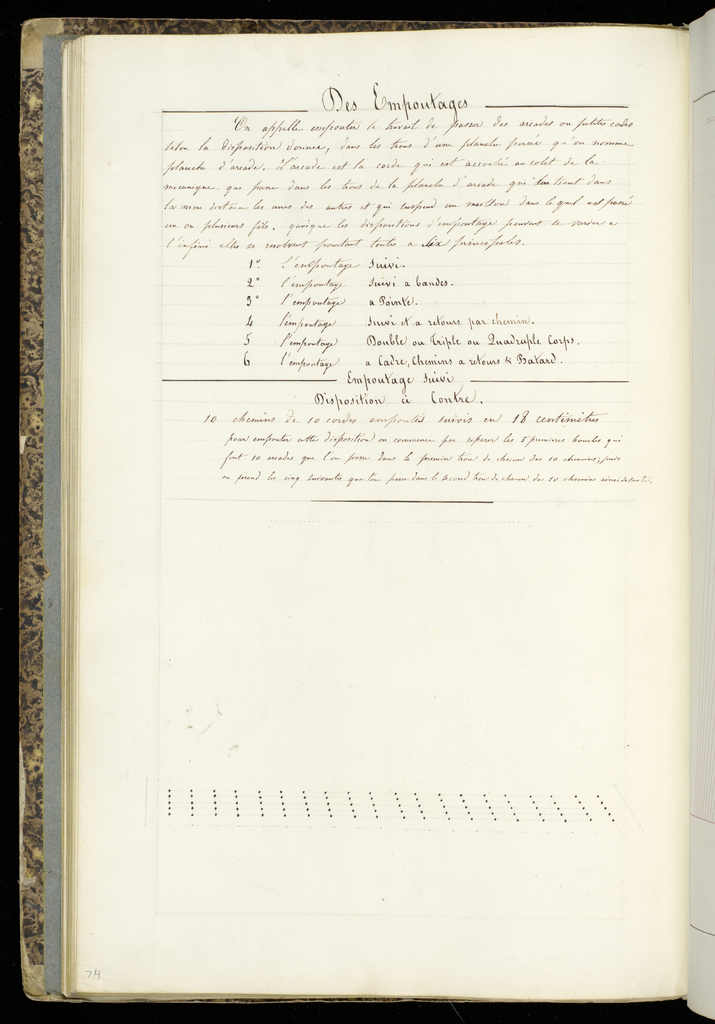 Des Empoutages
On appelle empouter le travail de passer des arcades ou petites cordes
selon la disposition donnée, dans les trous d'une planche percée qu'on nomme
planche d'arcade. L'arcade est la corde qui est accroché au colet de la
mecanique qui passe dans les trous de la planche d'arcade qui les tient dans
la meme distance les unes des autres et qui suspend un maillon dans le quel est passé
un ou plusieurs fils, quoique les dispositions d'empoutage peuvent se varier a
l'infini elles se resolvent pourtant toutes a Six principales.
1° l'empoutage Suivi.
2° l'empoutage Suivi a bandes.
3° l'empoutage a Pointe.
4 l'empoutage Suivi et a retours par chemin.
5 l'empoutage Double ou Triple ou Quadruple Corps.
6 l'empoutage a Cadre, Chemins a retours & Batard.
Empoutage Suivi
Disposition à Contre.
10 chemins de 10 cordes empoutés suivis en 18 centimètres
pour empouter cette disposition on commence par separer les 5 premieres boucles qui
font 10 arcades que l'on passe dans le premier trou de chacun des 10 chemins; puis
on prend les cinq suivantes que l'on passe dans le second trou de chacun des 10 chemins ainsi de suite.
74